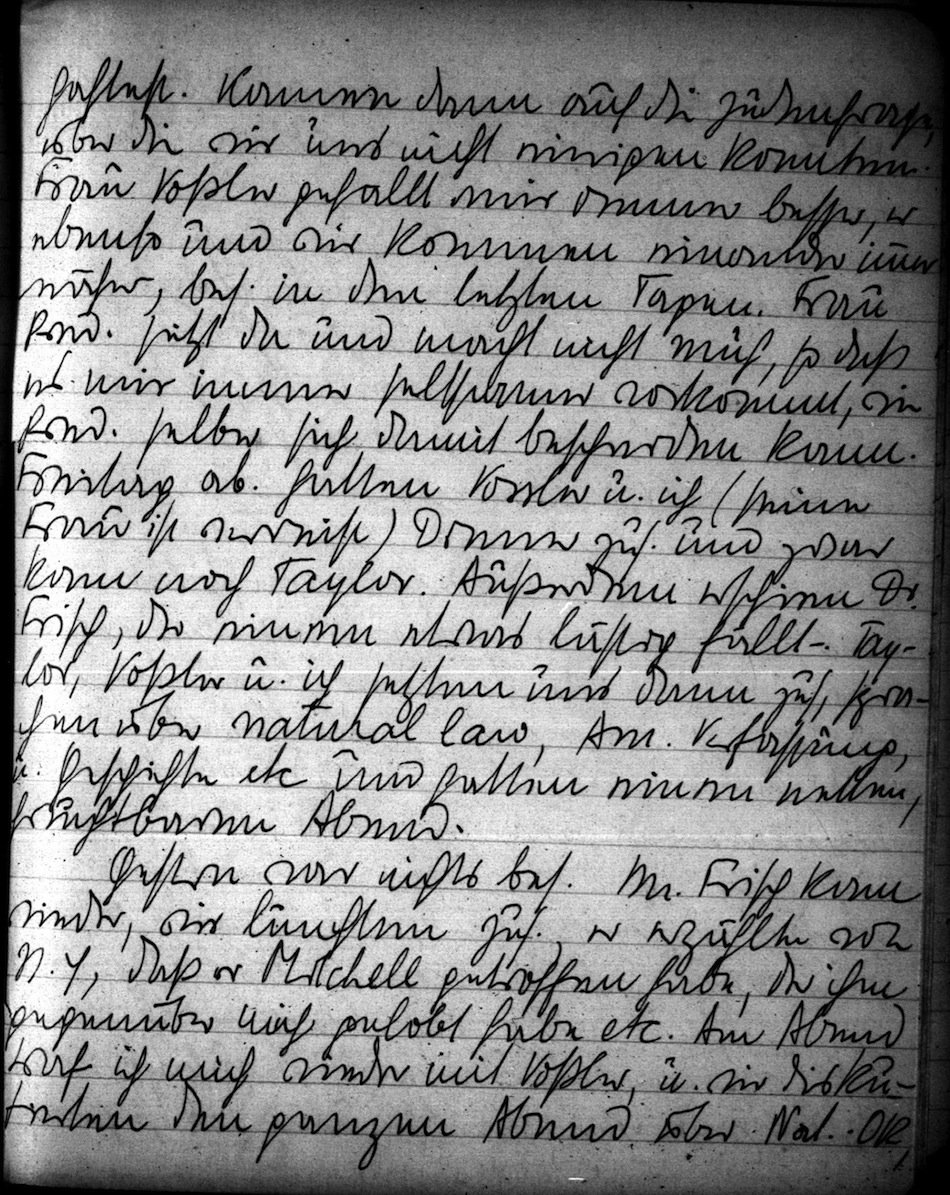 hachtest. Kamen dann auf die Judenfrage,
über die wir uns nicht einigen konnten.
Frau Voßler gefällt mir immer besser, er
ebenso und wir kommen einander immer
näher, bes. in den letzten Tagen. Frau
Fred. sitzt da und macht nicht muh, so daß
es mir immer seltsamer vorkommt, wie
Fred. selber sich damit bescheiden kann.
Freitag ab. hatten Vossler u. ich (seine
Frau ist verreist) Dinner zus. und zwar
kam noch Taylor. Außerdem erschien Dr.
Frisch, der einem etwas lästig fällt. Tay-
lor, Voßler u. ich setzten uns dann zus, spra-
chen über natural law, Am. Verfassung,
u. Geschichte etc und hatten einen netten,
fruchtbaren Abend.
Gestern war nichts bes. Mr. Frisch kam
wieder, wir lunchten zus., er erzählte von
N.Y, daß er Mitchell getroffen habe, der ihm
gegenüber mich gelobt habe etc. Am Abend
traf ich mich wieder mit Voßler, u. wir disku-
tierten den ganzen Abend über Nat. Ök